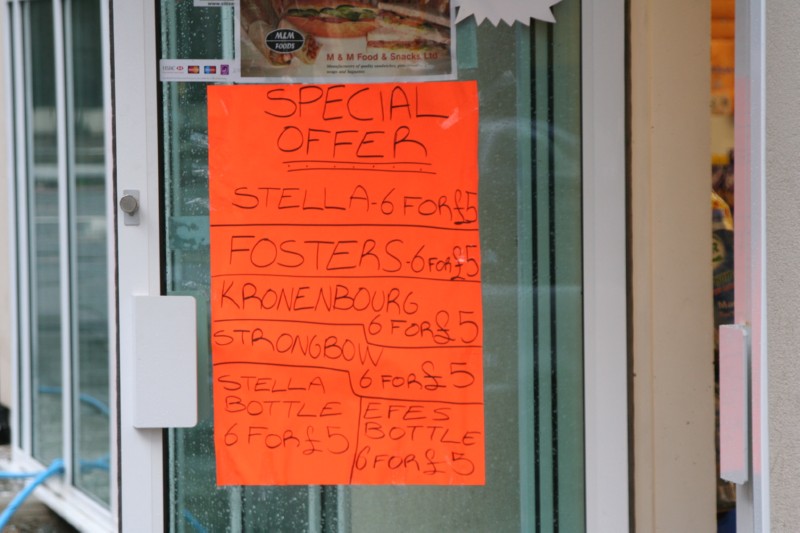 M&M
FOODS
M & M Food & Snacks Ltd
SPECIAL
OFFER
STELLA-6 FOR £5
FOSTERS-6 FOR £5
KRONENBOURG
6 FOR £5
STRONGBOW
6 FOR £5
STELLA
BOTTLE
6 FOR £5
EFES
BOTTLE
6 FOR £5